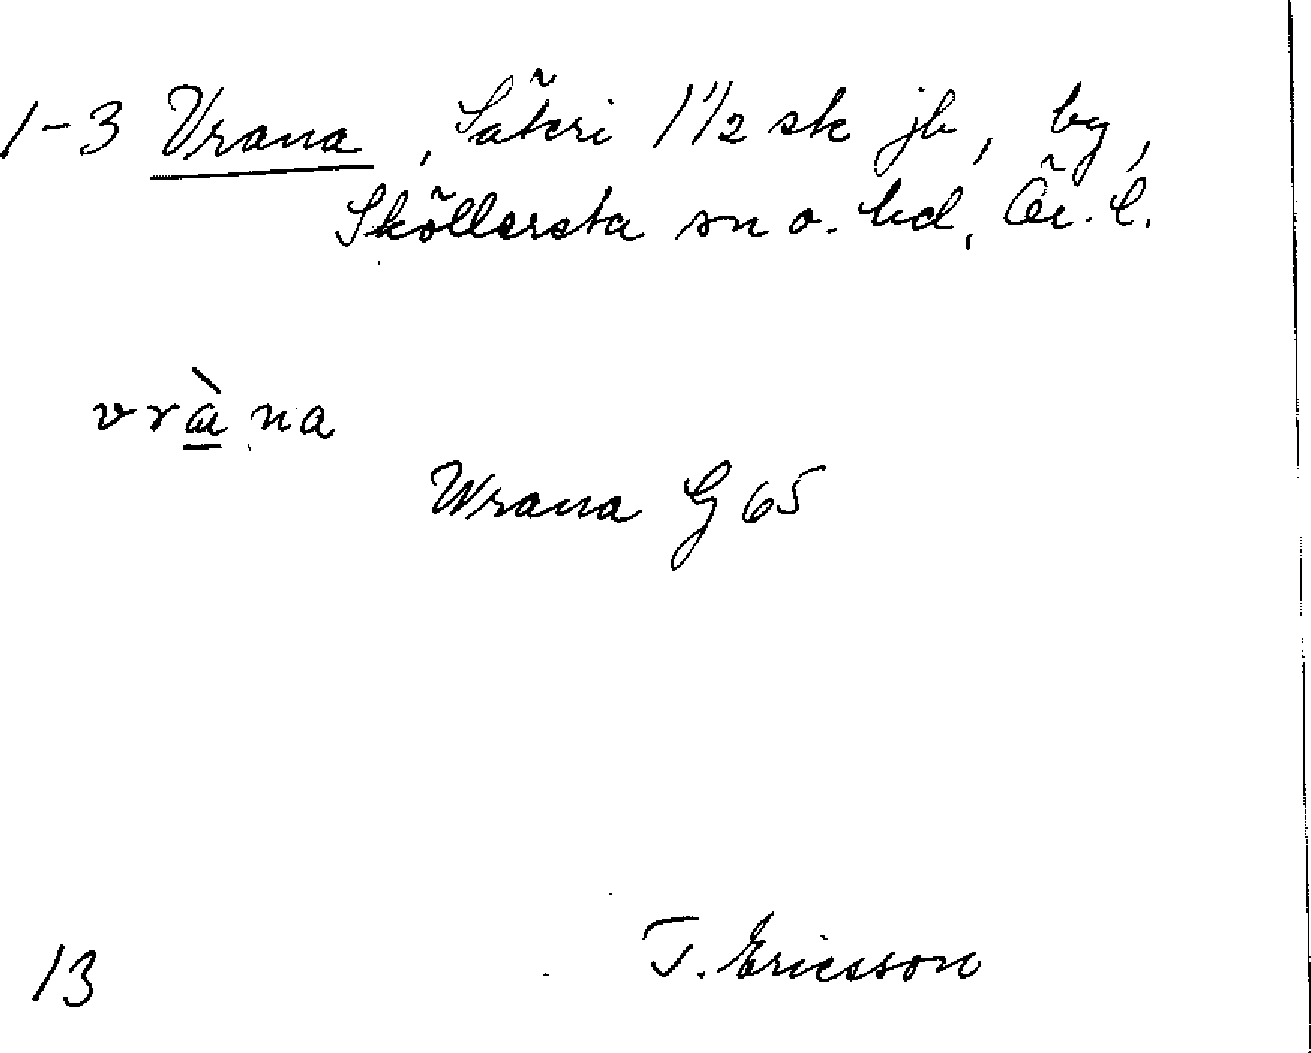 1-3 Vrana, Säteri 1 1/2 sk jb, by,
Sköllersta sn o. hd, Ör. l.
vrà na
Wrana G 65
T. Ericsson
13